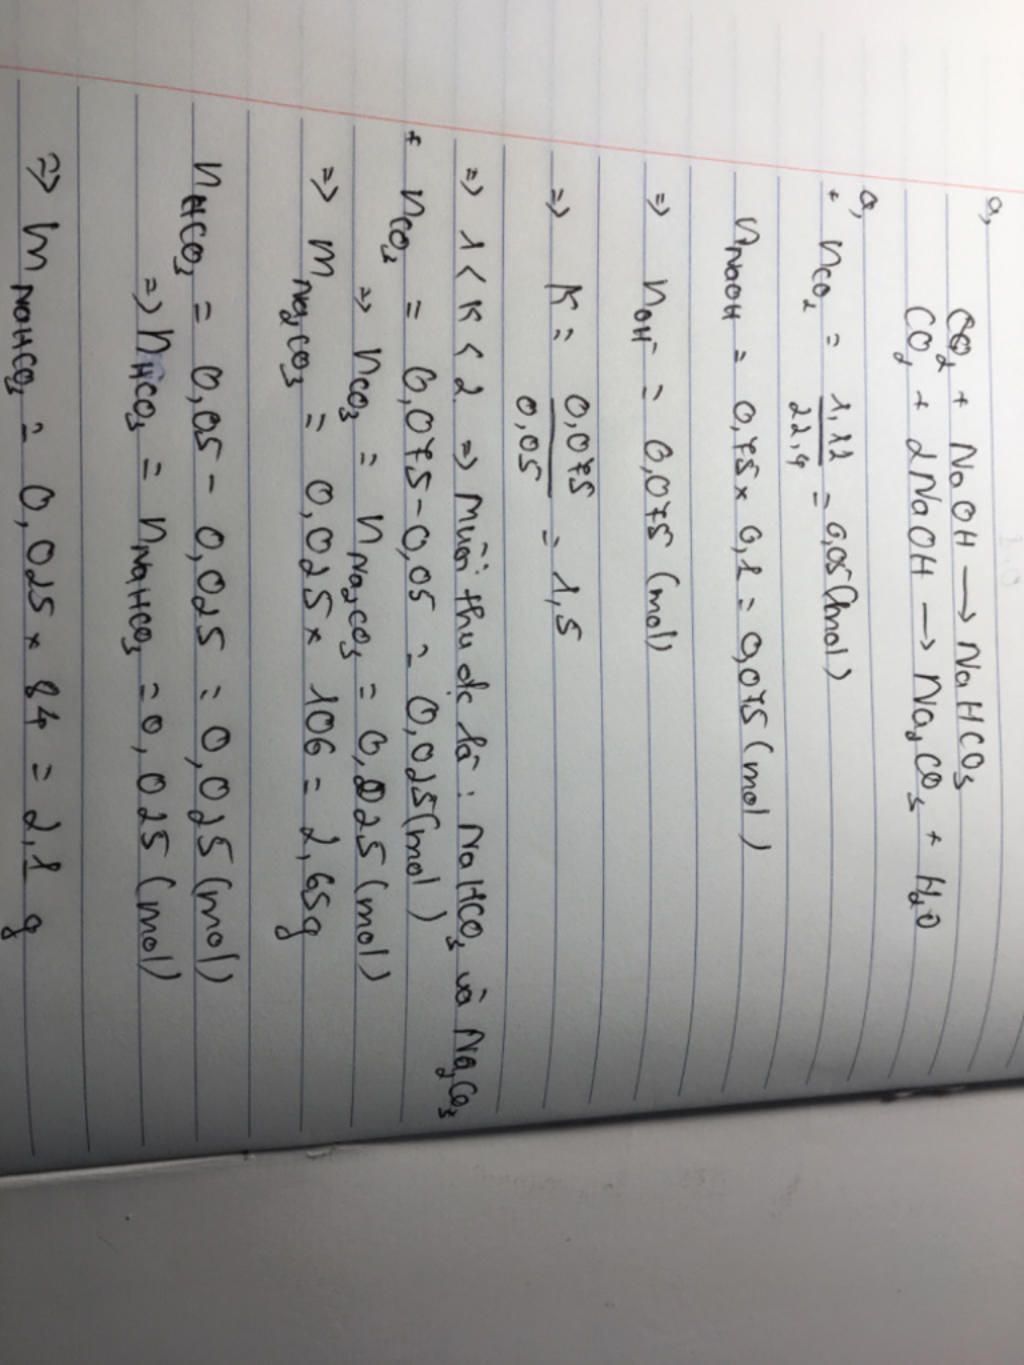 a,
CO₂ + NaOH → NaHCO₃
CO₂ + 2NaOH → Na₂CO₃ + H₂O
a,
+ nCO₂ = 1,12/22,4 = 0,05 (mol)
nNaOH = 0,75 × 0,1 = 0,075 (mol)
=> nOH⁻ = 0,075 (mol)
=> K = 0,075/0,05 = 1,5
=> 1 < K < 2 => Muối thu đc là : NaHCO₃ và Na₂CO₃
+ nCO₃ = 0,075 - 0,05 = 0,025 (mol)
=> nCO₃ = nNa₂CO₃ = 0,025 (mol)
=> mNa₂CO₃ = 0,025 × 106 = 2,65g
nHCO₃ = 0,05 - 0,025 = 0,025 (mol)
=> nHCO₃ = nNaHCO₃ = 0,025 (mol)
=> mNaHCO₃ = 0,025 × 84 = 2,1 g